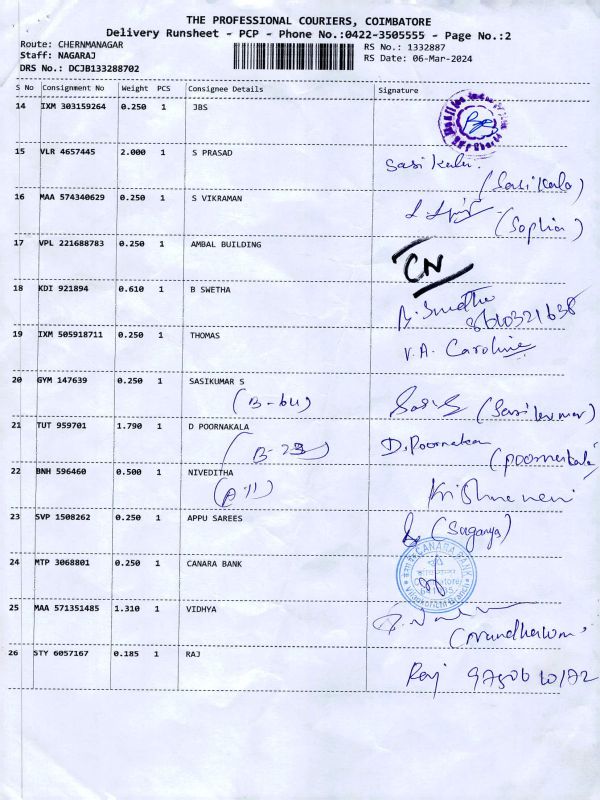 THE PROFESSIONAL COURIERS, COIMBATORE
Delivery Runsheet - PCP - Phone No.:0422-3505555 - Page No.:2
Route: CHERNMANAGAR RS No.: 1332887
Staff: NAGARAJ RS Date: 06-Mar-2024
DRS No.: DCJB133288702
S No Consignment No Weight PCS Consignee Details Signature
14 IXM 303159264 0.250 1 JBS
15 VLR 4657445 2.000 1 S PRASAD Sasi Kala.
(Sasi Kala)
16 MAA 574340629 0.250 1 S VIKRAMAN
(Sophia)
17 VPL 221688783 0.250 1 AMBAL BUILDING
CN
18 KDI 921894 0.610 1 B SWETHA
B. Swetha
8610321638
19 IXM 505918711 0.250 1 THOMAS
V.A. Caroline
20 GYM 147639 0.250 1 SASIKUMAR S
(B-64) (Sasikumar)
21 TUT 959701 1.790 1 D POORNAKALA D.Poornakala
(B-23) (poornakala)
22 BNH 596460 0.500 1 NIVEDITHA
(A-11) Krishnaveni
23 SVP 1508262 0.250 1 APPU SAREES (Suganya)
24 MTP 3068801 0.250 1 CANARA BANK
CANARA BANK
25 MAA 571351485 1.310 1 VIDHYA
26 STY 6057167 0.185 1 RAJ
Raj